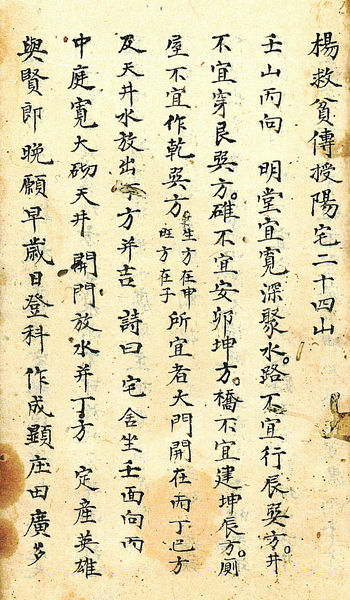 楊救貧傳授陽宅二十四山
壬山丙向　明堂宜寬深聚水。路不宜行辰巽方。井
不宜穿艮巽方。碓不宜安卯坤方。橋不宜建坤辰方。廁
屋不宜作乾巽方 生方在申 旺方在子 所宜者大門開在丙丁巳方
及天井水放出丁方并吉　詩曰　宅舍坐壬面向丙
中庭寬大砌天井　開門放水并丁方　定產英雄
與賢郎　晚願早歲日登科　作成顯庄田廣多